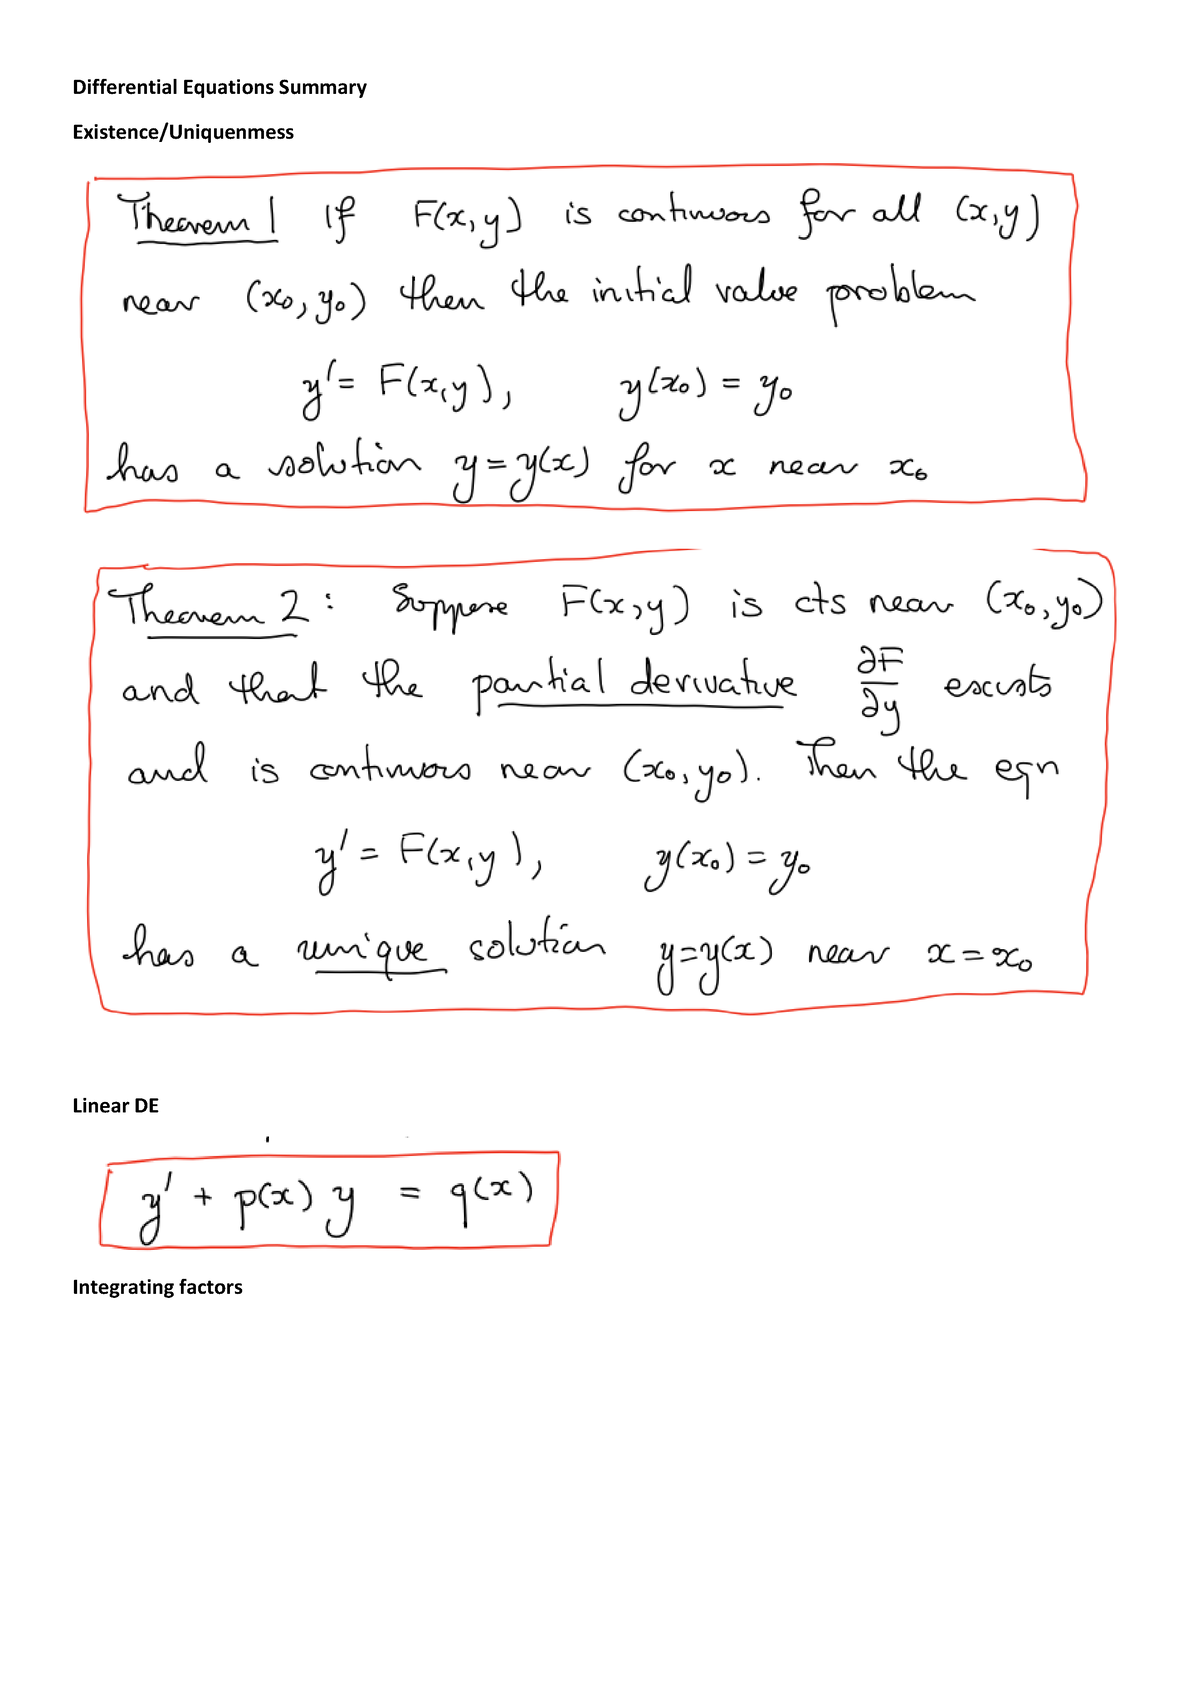 Differential Equations Summary
Existence/Uniquenmess
Theorem 1 If F(x,y) is continuous for all (x,y)
near (x₀, y₀) then the initial value problem
y' = F(x,y), y(x₀) = y₀
has a solution y = y(x) for x near x₀
Theorem 2: Suppose F(x,y) is cts near (x₀,y₀)
and that the partial derivative ∂F/∂y exists
and is continuous near (x₀,y₀). Then the eqn
y' = F(x,y), y(x₀) = y₀
has a unique solution y=y(x) near x = x₀
Linear DE
y' + p(x) y = q(x)
Integrating factors